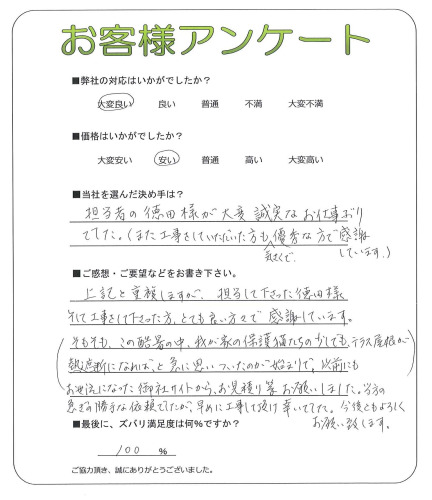 お客様アンケート
■弊社の対応はいかがでしたか？
大変良い　良い　普通　不満　大変不満
■価格はいかがでしたか？
大変安い　安い　普通　高い　大変高い
■当社を選んだ決め手は？
担当者の徳田様が大変誠実なお仕事ぶり
でした。（また工事をしていただいた方も気さくで、優秀な方で感謝
しています。）
■ご感想・ご要望などをお書き下さい。
上記と重複しますが、担当して下さった徳田様
そして工事をして下さった方、とても良い方々で感謝しています。
（そもそも、この酷暑の中、我が家の保護猫たちの少しでも、テラス屋根が
熱遮断になれば、と急に思いついたのが始まりで、以前にも
お世話になった御社サイトから、お見積り等お願いしました。当方の
急ぎの勝手な依頼でしたが、早めに工事して頂け幸いでした。今後ともよろしく
お願い致します。
■最後に、ズバリ満足度は何％ですか？
100 ％
ご協力頂き、誠にありがとうございました。